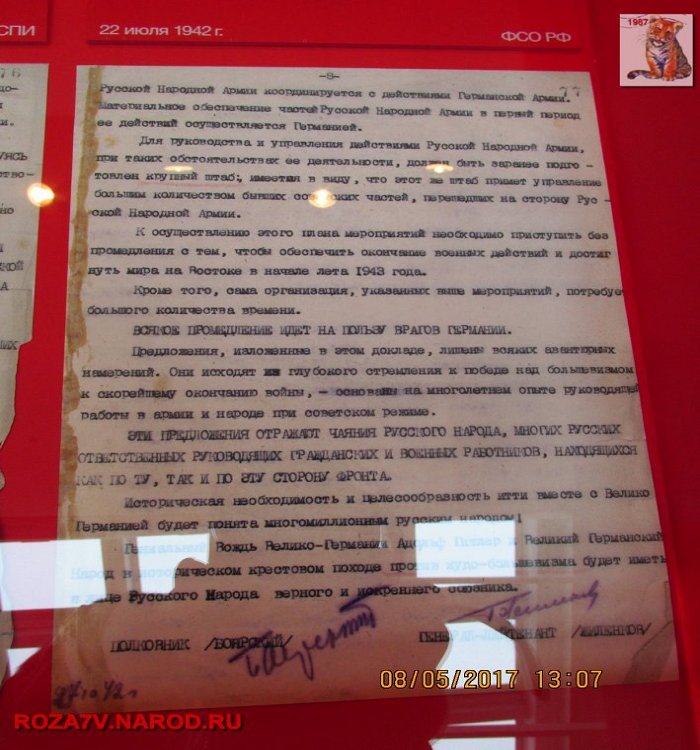 СПИ
22 июля 1942 г.
ФСО РФ
1987
-8-
77
76
Русской Народной Армии координируется с действиями Германской Армии.
Материальное обеспечение частей Русской Народной Армии в первый период
ее действий осуществляется Германией.
Для руководства и управления действиями Русской Народной Армии,
при таких обстоятельствах ее деятельности, должен быть заранее подго-
товлен крупный штаб, имеется в виду, что этот же штаб примет управление
большим количеством бывших советских частей, перешедших на сторону Рус-
ской Народной Армии.
К осуществлению этого плана мероприятий необходимо приступить без
промедления с тем, чтобы обеспечить окончание военных действий и достиг
нуть мира на Востоке в начале лета 1943 года.
Кроме того, сама организация, указанных выше мероприятий, потребуе
большого количества времени.
ВСЯКОЕ ПРОМЕДЛЕНИЕ ИДЕТ НА ПОЛЬЗУ ВРАГОВ ГЕРМАНИИ.
Предложения, изложенные в этом докладе, лишены всяких авантюрных
намерений. Они исходят из глубокого стремления к победе над большевизмом
к скорейшему окончанию войны, - основаны на многолетнем опыте руководящей
работы в армии и народе при советском режиме.
ЭТИ ПРЕДЛОЖЕНИЯ ОТРАЖАЮТ ЧАЯНИЯ РУССКОГО НАРОДА, МНОГИХ РУССКИХ
ОТВЕТСТВЕННЫХ РУКОВОДЯЩИХ ГРАЖДАНСКИХ И ВОЕННЫХ РАБОТНИКОВ, НАХОДЯЩИХСЯ
КАК ПО ТУ, ТАК И ПО ЭТУ СТОРОНУ ФРОНТА.
Историческая необходимость и целесообразность итти вместе с Велико
Германией будет понята многомиллионным русским народом!
Гениальный Вождь Велико-Германии Адольф Гитлер и Великий Германский
Народ в историческом крестовом походе против жудо-большевизма будет иметь
в лице Русского Народа верного и искреннего союзника.
ПОЛКОВНИК /БОЯРСКИЙ/
ГЕНЕРАЛ-ЛЕЙТЕНАНТ /ЖИЛЕНКОВ/
08/05/2017 13:07
ROZA7V.NAROD.RU